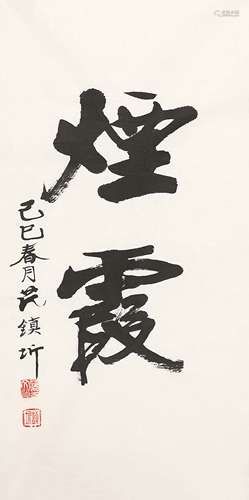 煙霞
己巳春月吴鎮圻